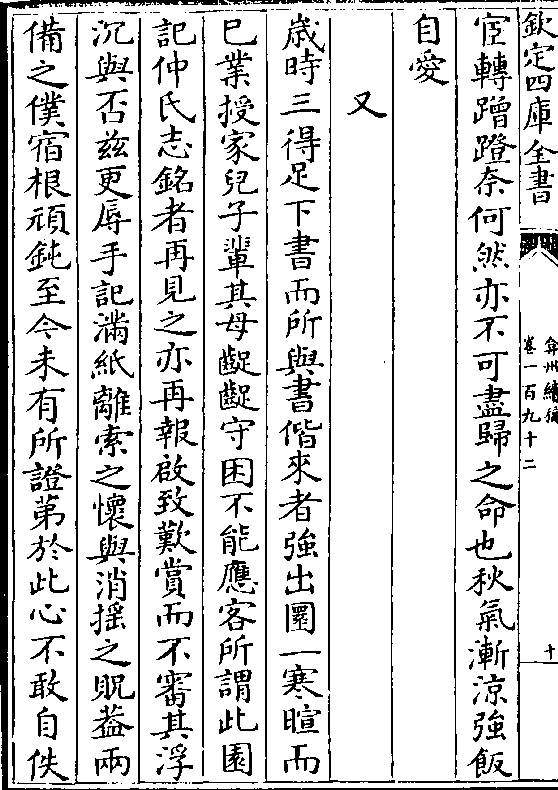 欽定四庫全書
弇州續稿
卷一百九十二
十
宦轉蹭蹬奈何然亦不可盡歸之命也秋氣漸涼強飯
自愛
又
歲時三得足下書而所與書偕來者強出園一寒暄而
已業授家兒子輩其母齪齪守困不能應客所謂此園
記仲氏志銘者再見之亦再報啟致歎賞而不審其浮
沉與否兹更辱手記滿紙離索之懷與消揺之貺葢兩
備之僕宿根頑鈍至今未有所證第於此心不敢自佚